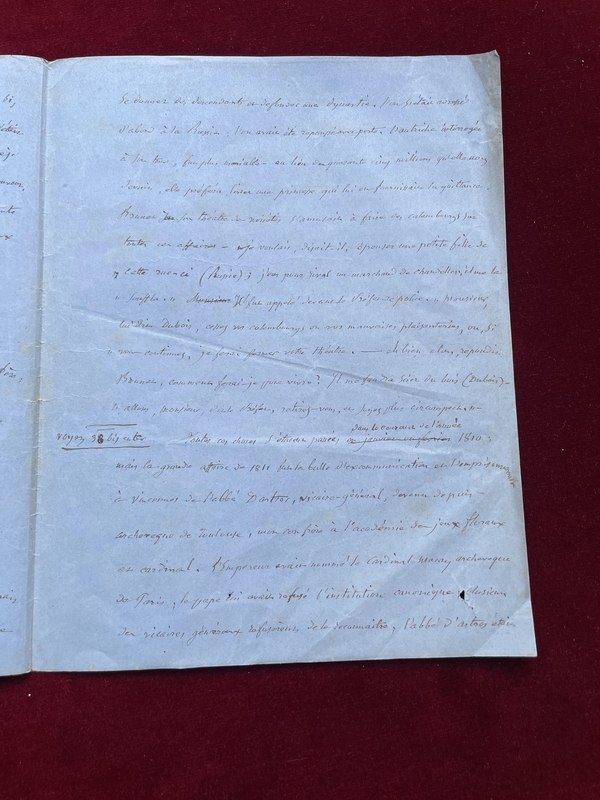 Di,
de donner des descendants et défenseurs aux dynasties. l'on s'était adressé
d'abord à la Russie. l'on avait été repoussé avec perte. l'autriche interrogée
à son tour, fut plus - en lieu de quarante cinq millions qu'elle
devait, elle préféra livrer une princesse qui lui en fournirait la quittance.
Brunet, sur son théâtre des variétés s'amusait à faire des calembourgs sur
toutes ces affaires - « je voulais, disait-il, épouser une petite fille de
« cette rue-ci (Russie) ; j'eus pour rival un marchand de chandelles, et me la
« souffla. » Monsieur Il fut appelé devant le Préfet de police. « monsieur,
lui dit Dubois, cessez vos calembourgs et vos mauvaises plaisanteries, ou, si
« vous continuez, je ferai fermer votre théâtre. — Et bien alors, répondit
Brunet, comment ferai-je pour vivre ? Il me faudra scier du bois (Dubois) -
« allons, monsieur, dit le préfet, retirez-vous, et soyez plus circonspect. »
dans le courant de l'année
voyez 38 bis et ter Toutes ces choses s'étaient passées en janvier en février 1810 ;
mais la grande affaire de 1811 fut la bulle d'excommunication et l'emprisonnement
à Vincennes de l'abbé Dastros, vicaire-général, devenu depuis -
archevêque de Toulouse, mon confrère à l'académie des jeux floraux
et cardinal. l'Empereur avait nommé le cardinal Maury archevêque
de Paris, le pape lui avait refusé l'institution canonique plusieurs
des vicaires généraux refusèrent de le reconnaître, l'abbé d'astros était